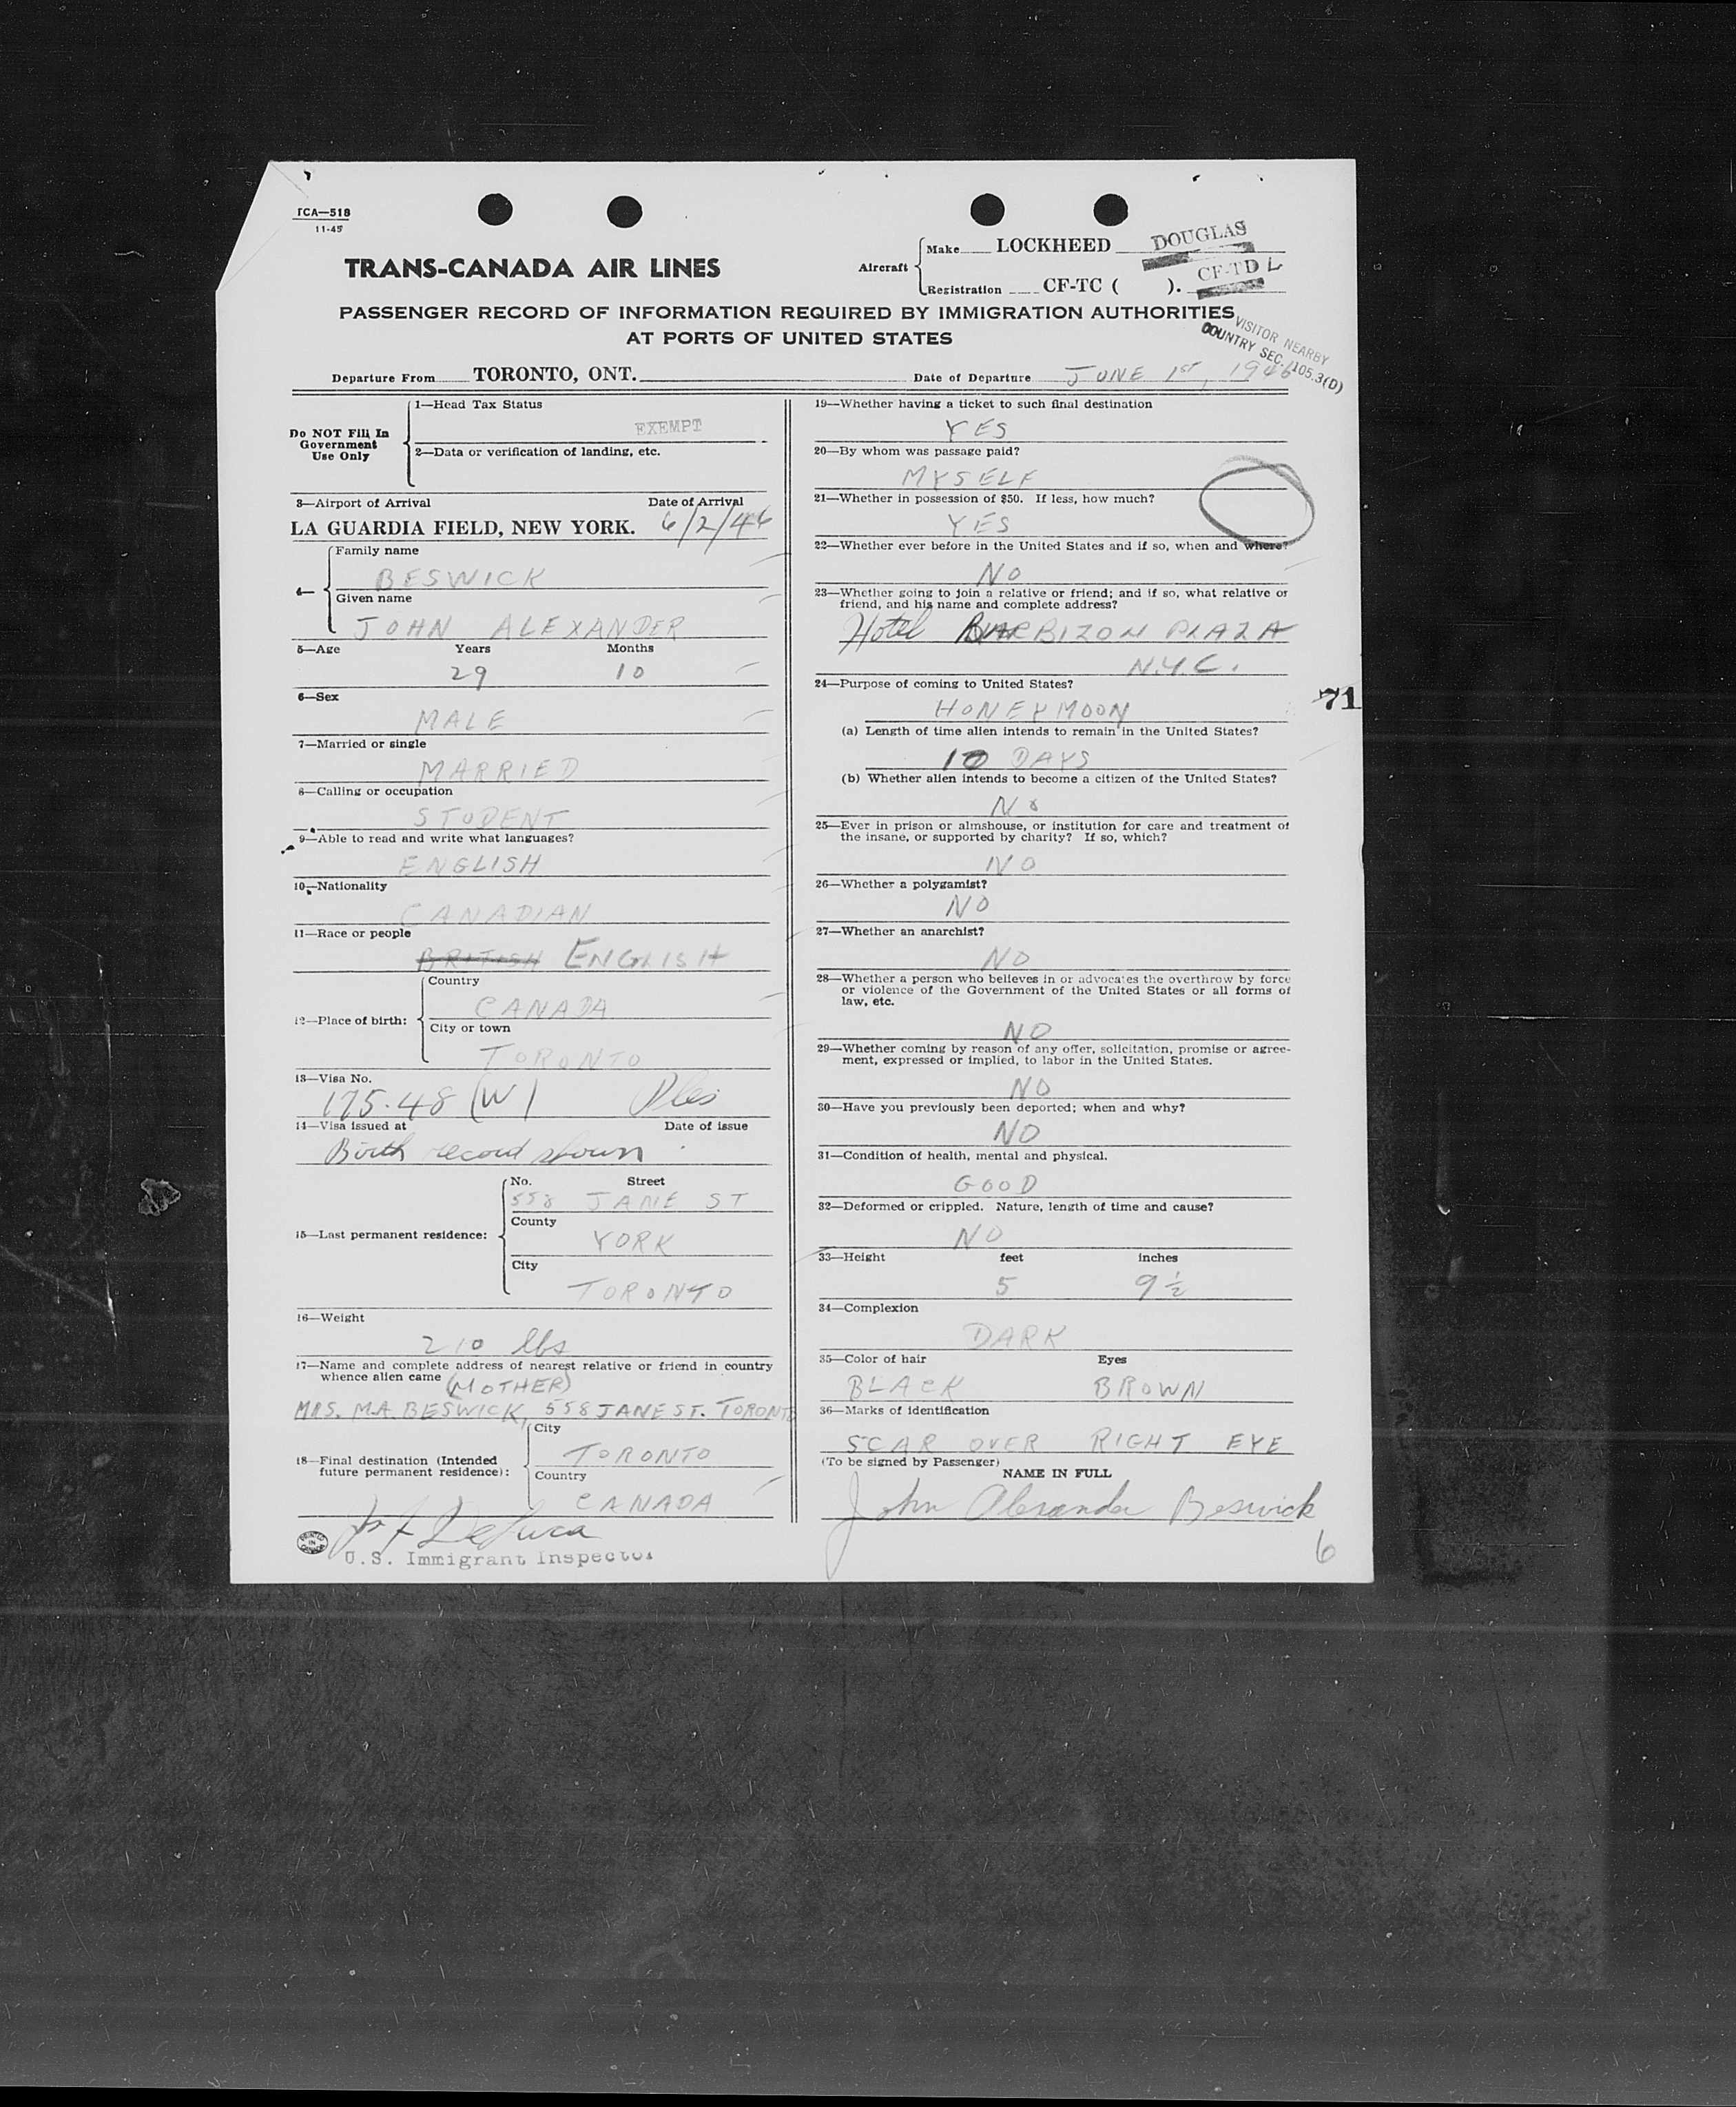 TCA—518
11-45
TRANS-CANADA AIR LINES
Aircraft
Make LOCKHEED DOUGLAS
Registration CF-TC ( ). CF-TD L
PASSENGER RECORD OF INFORMATION REQUIRED BY IMMIGRATION AUTHORITIES
AT PORTS OF UNITED STATES
VISITOR NEARBY
COUNTRY SEC. 105.3(D)
Departure From TORONTO, ONT. Date of Departure JUNE 1ST, 1946
Do NOT Fill In
Government
Use Only
1—Head Tax Status
EXEMPT
2—Data or verification of landing, etc.
3—Airport of Arrival Date of Arrival
LA GUARDIA FIELD, NEW YORK. 6/2/46
4—
Family name
BESWICK
Given name
JOHN ALEXANDER
5—Age Years Months
29 10
6—Sex
MALE
7—Married or single
MARRIED
8—Calling or occupation
STUDENT
9—Able to read and write what languages?
ENGLISH
10—Nationality
CANADIAN
11—Race or people
BRITISH ENGLISH
12—Place of birth:
Country
CANADA
City or town
TORONTO
13—Visa No.
175.48 (W)
14—Visa issued at Date of issue
Birth record shown
15—Last permanent residence:
No. Street
558 JANE ST
County
YORK
City
TORONTO
16—Weight
210 lbs
17—Name and complete address of nearest relative or friend in country
whence alien came (MOTHER)
MRS. M.A. BESWICK, 558 JANE ST. TORONTO
18—Final destination (Intended
future permanent residence):
City
TORONTO
Country
CANADA
DeLuca
U.S. Immigrant Inspector
PRINTED
IN
CANADA
19—Whether having a ticket to such final destination
YES
20—By whom was passage paid?
MYSELF
21—Whether in possession of $50. If less, how much?
YES
22—Whether ever before in the United States and if so, when and where?
NO
23—Whether going to join a relative or friend; and if so, what relative or
friend, and his name and complete address?
Hotel BARBIZON PLAZA
N.Y.C.
24—Purpose of coming to United States?
HONEYMOON
71
(a) Length of time alien intends to remain in the United States?
10 DAYS
(b) Whether alien intends to become a citizen of the United States?
NO
25—Ever in prison or almshouse, or institution for care and treatment of
the insane, or supported by charity? If so, which?
NO
26—Whether a polygamist?
NO
27—Whether an anarchist?
NO
28—Whether a person who believes in or advocates the overthrow by force
or violence of the Government of the United States or all forms of
law, etc.
NO
29—Whether coming by reason of any offer, solicitation, promise or agree-
ment, expressed or implied, to labor in the United States.
NO
30—Have you previously been deported; when and why?
NO
31—Condition of health, mental and physical.
GOOD
32—Deformed or crippled. Nature, length of time and cause?
NO
33—Height feet inches
5 9½
34—Complexion
DARK
35—Color of hair Eyes
BLACK BROWN
36—Marks of identification
SCAR OVER RIGHT EYE
(To be signed by Passenger)
NAME IN FULL
John Alexander Beswick
6